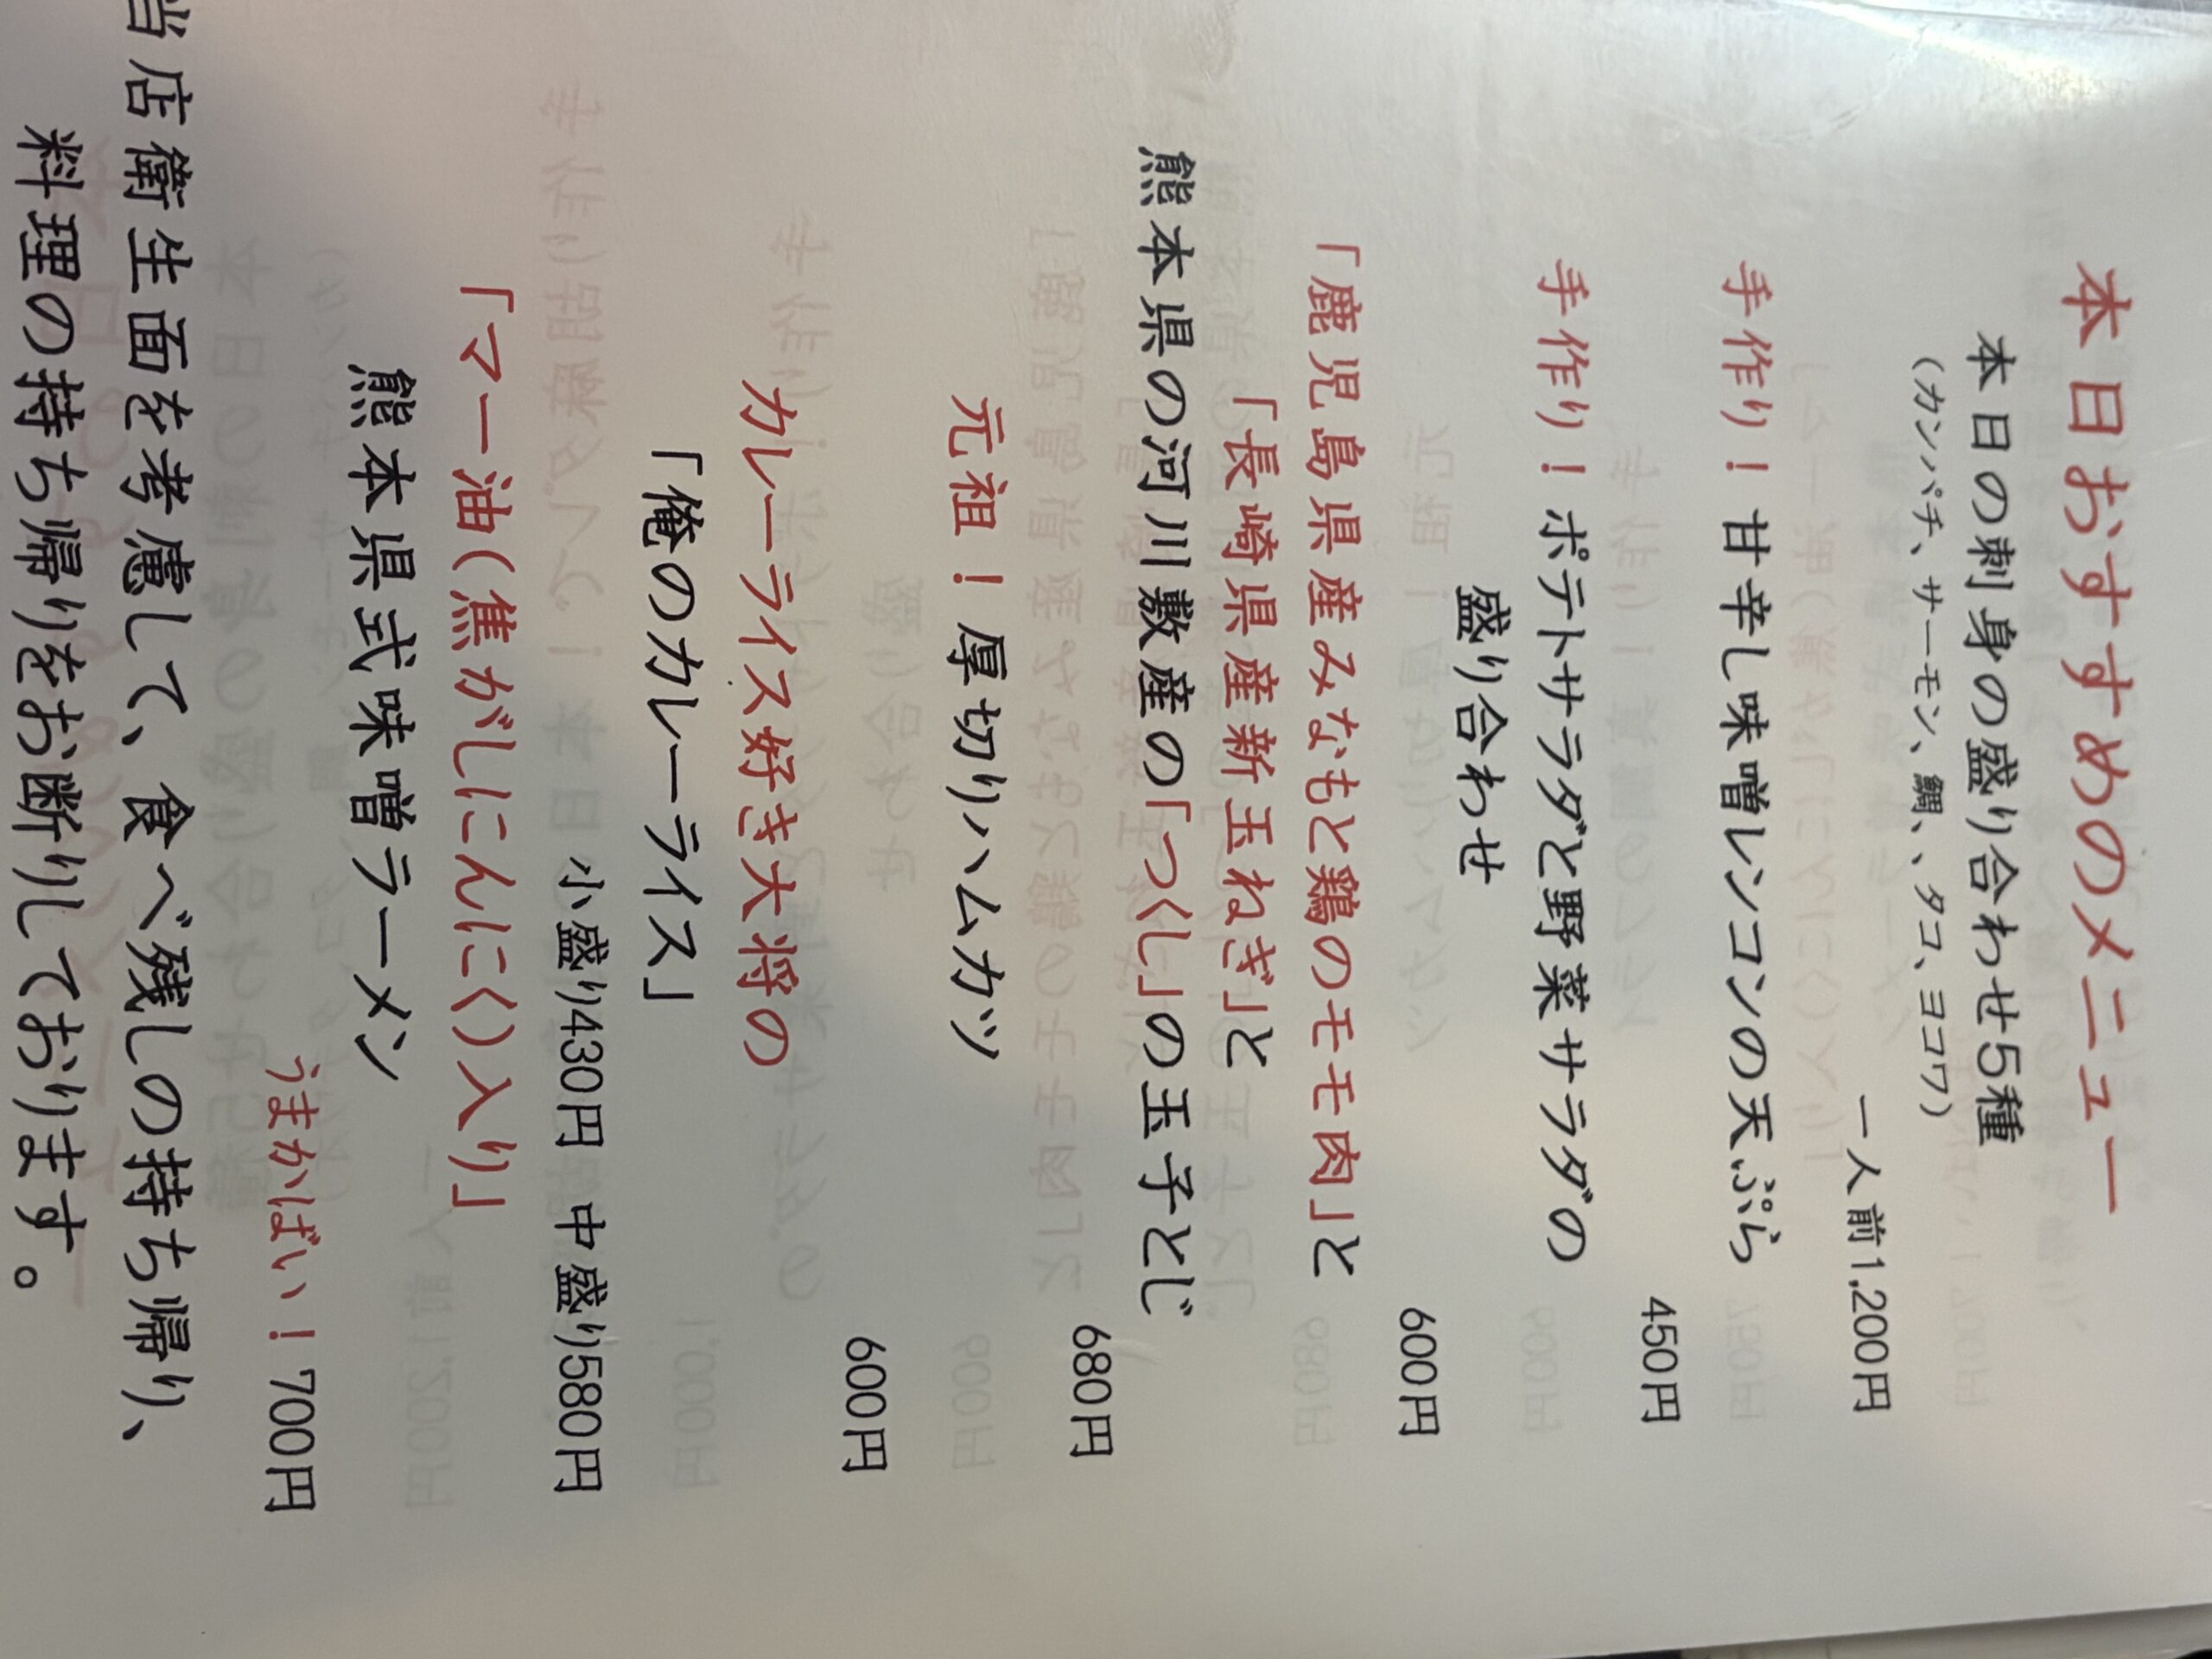 本日おすすめのメニュー
本日の刺身の盛り合わせ5種
（カンパチ、サーモン、鯛、、タコ、ヨコワ）
一人前1,200円
手作り！甘辛し味噌レンコンの天ぷら
450円
手作り！ポテトサラダと野菜サラダの
盛り合わせ
600円
「鹿児島県産みなもと鶏のモモ肉」と
「長崎県産新玉ねぎ」と
熊本県の河川敷産の「つくし」の玉子とじ
680円
元祖！厚切りハムカツ
600円
カレーライス好き大将の
「俺のカレーライス」
小盛り430円 中盛り580円
「マー油（焦がしにんにく）入り」
熊本県式味噌ラーメン
うまかばい！700円
当店衛生面を考慮して、食べ残しの持ち帰り、
料理の持ち帰りをお断りしております。